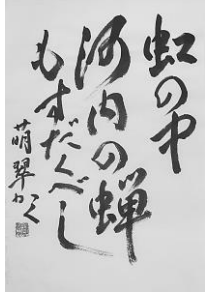 虹の中
河内の蝉
もすだくべし
萌翠かく